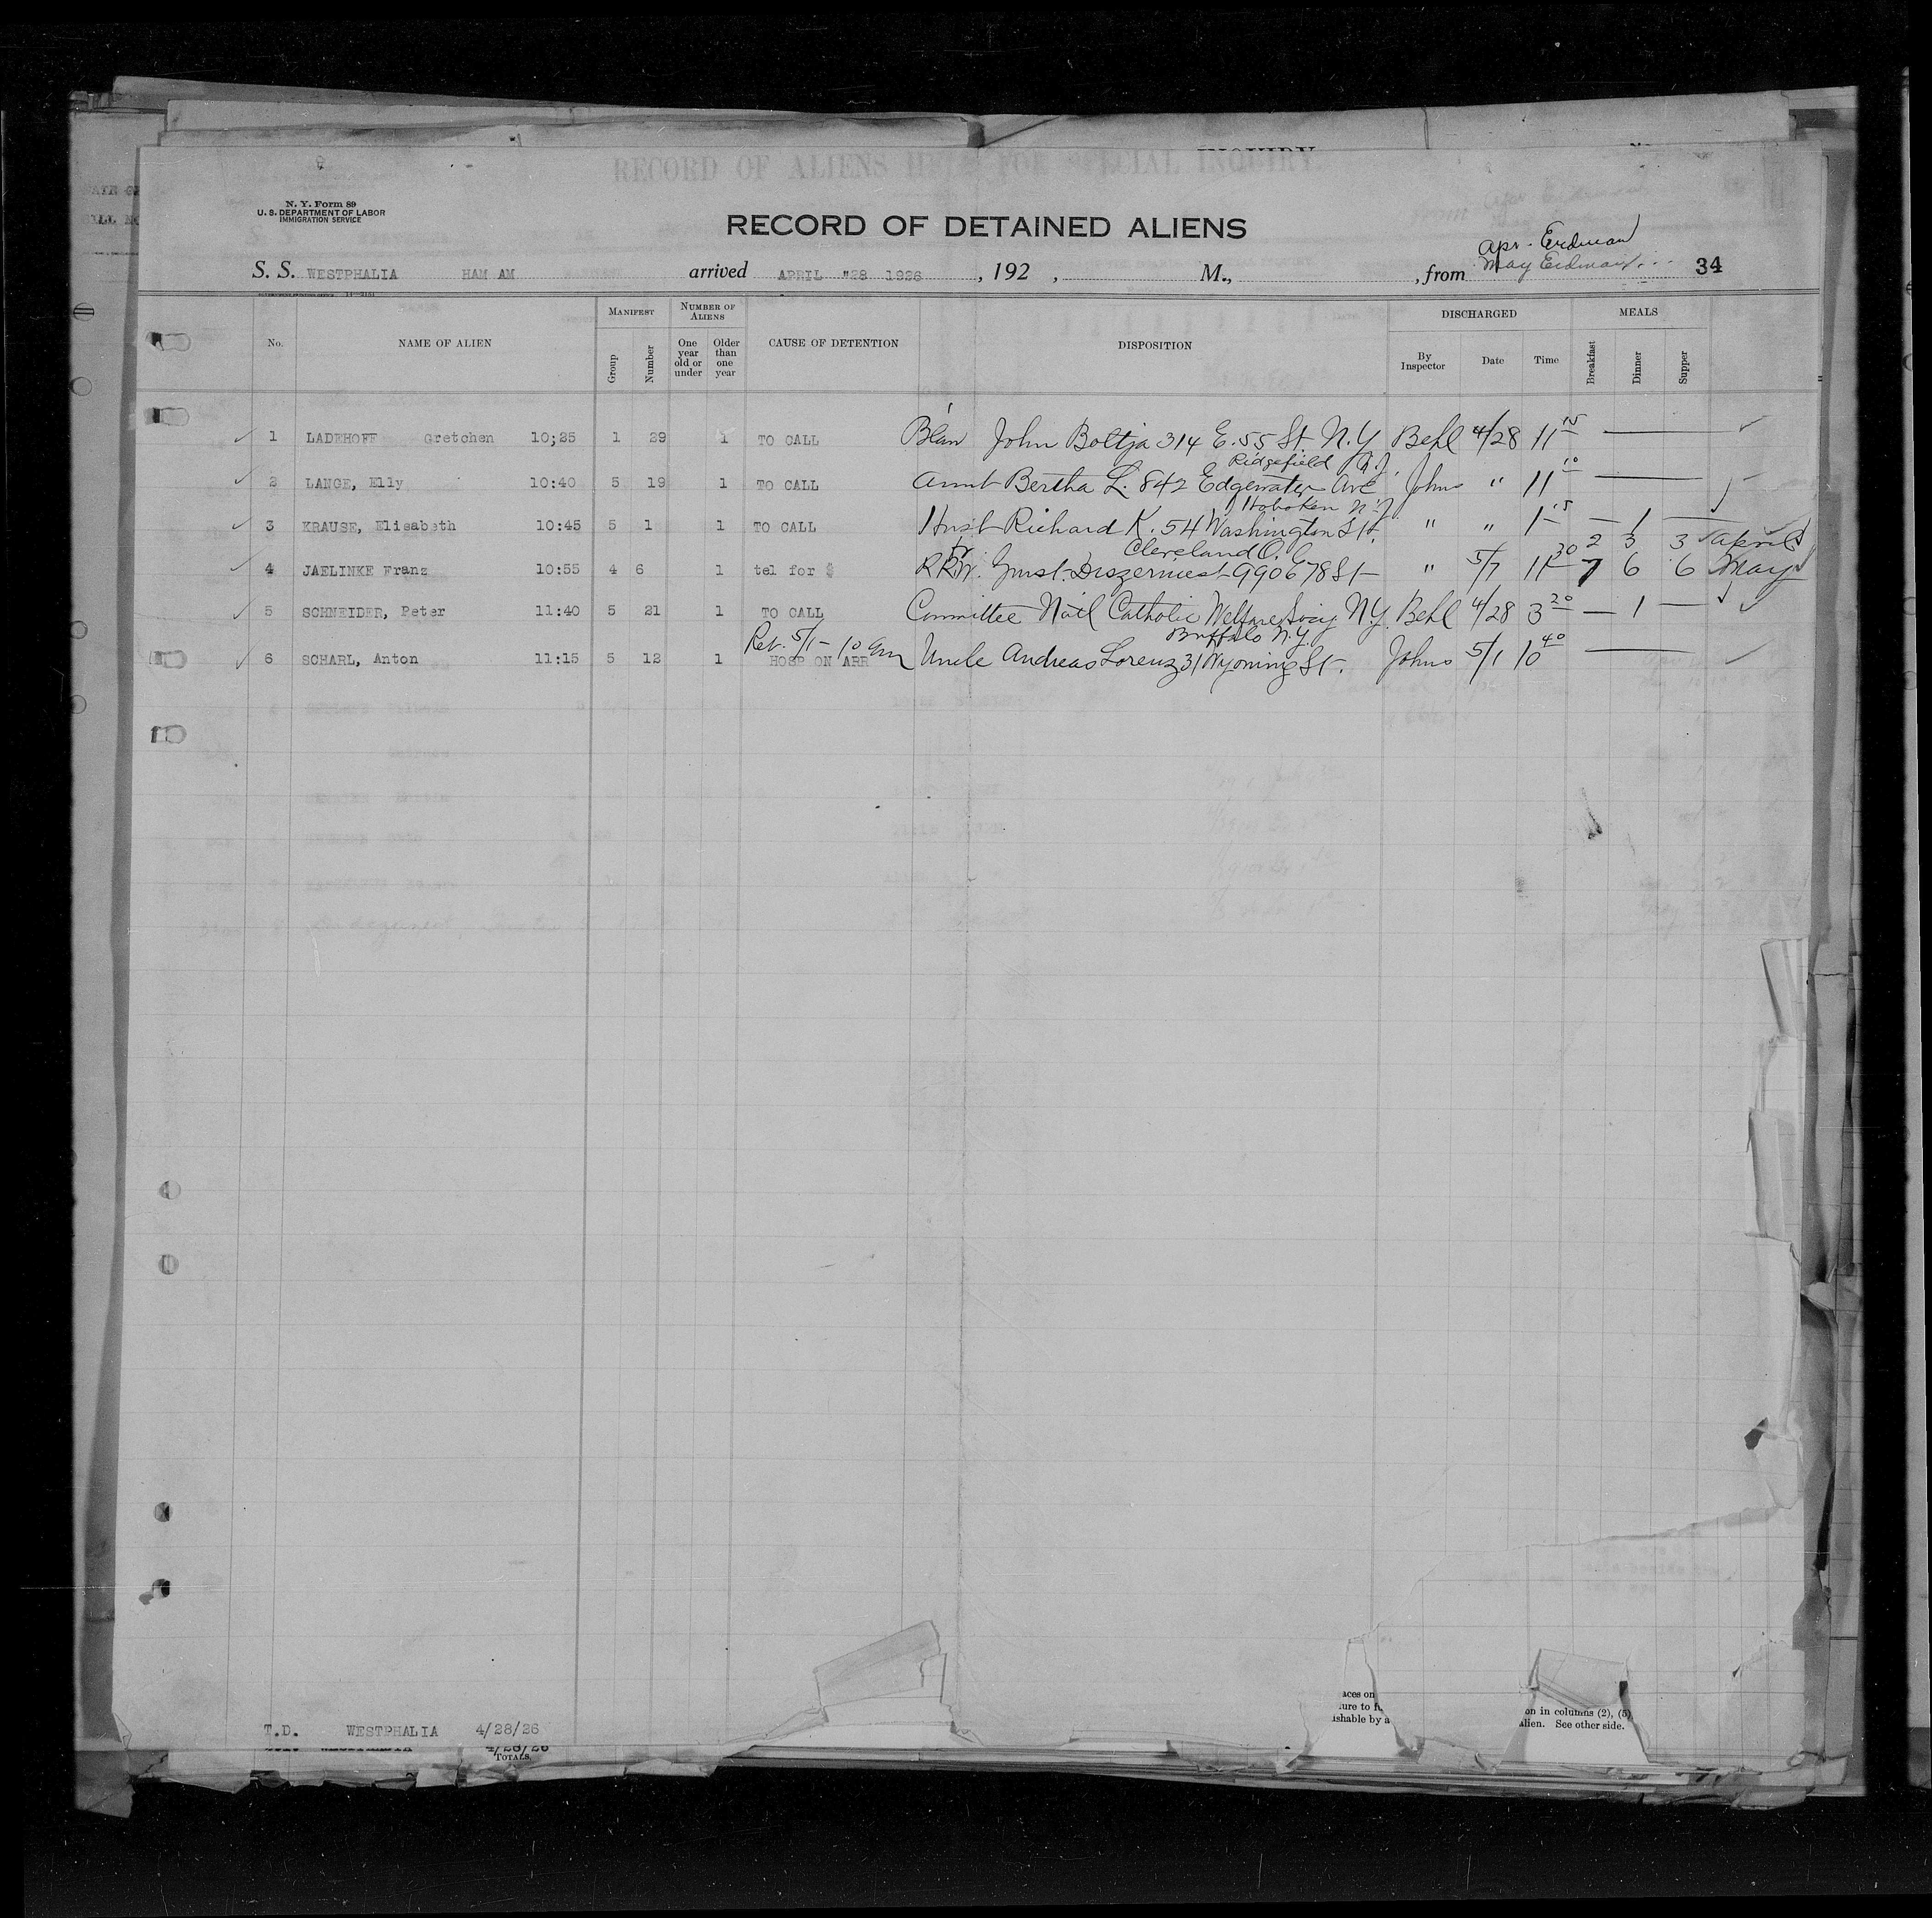 RECORD OF ALIENS FOR SPECIAL INQUIRY
N. Y. Form 89
U. S. DEPARTMENT OF LABOR
IMMIGRATION SERVICE
RECORD OF DETAINED ALIENS
Apr. Erdman
S. S. WESTPHALIA HAM AM arrived APRIL "28 1926 , 192 , M., , from May Erdman 34
No. NAME OF ALIEN MANIFEST Group Number NUMBER OF ALIENS One year old or under Older than one year CAUSE OF DETENTION DISPOSITION DISCHARGED By Inspector Date Time MEALS Breakfast Dinner Supper
1 LADEHOFF Gretchen 10;25 1 29 1 TO CALL John Boltja 314 E. 55 St. N.Y Behl 4/28 11 15
Ridgefield N.J.
2 LANGE, Elly 10:40 5 19 1 TO CALL Aunt Bertha L. 842 Edgewater Ave Johns " 11 10
Hoboken N.J.
3 KRAUSE, Elisabeth 10:45 5 1 1 TO CALL Husb Richard K. 54 Washington St. " " 1 15 — 1 —
Cleveland O. 2 3 3 April
4 JAELINKE Franz 10:55 4 6 1 tel for $ 990 E 78 St " 5/7 11 30 7 6 6 May
5 SCHNEIDER, Peter 11:40 5 21 1 TO CALL Committee Nat'l Catholic Welfare Socy N.Y. Behl 4/28 3 20 — 1 —
Ret. 5/1 - 10 am Buffalo N.Y.
6 SCHARL, Anton 11:15 5 12 1 HOSP ON ARR Uncle Andreas Lorenz 31 Wyoming St. Johns 5/1 10 40
T.D. WESTPHALIA 4/28/26
WESTPHALIA 4/28/26
TOTALS
aces on
ure to fu
ishable by a
on in columns (2), (5)
alien. See other side.